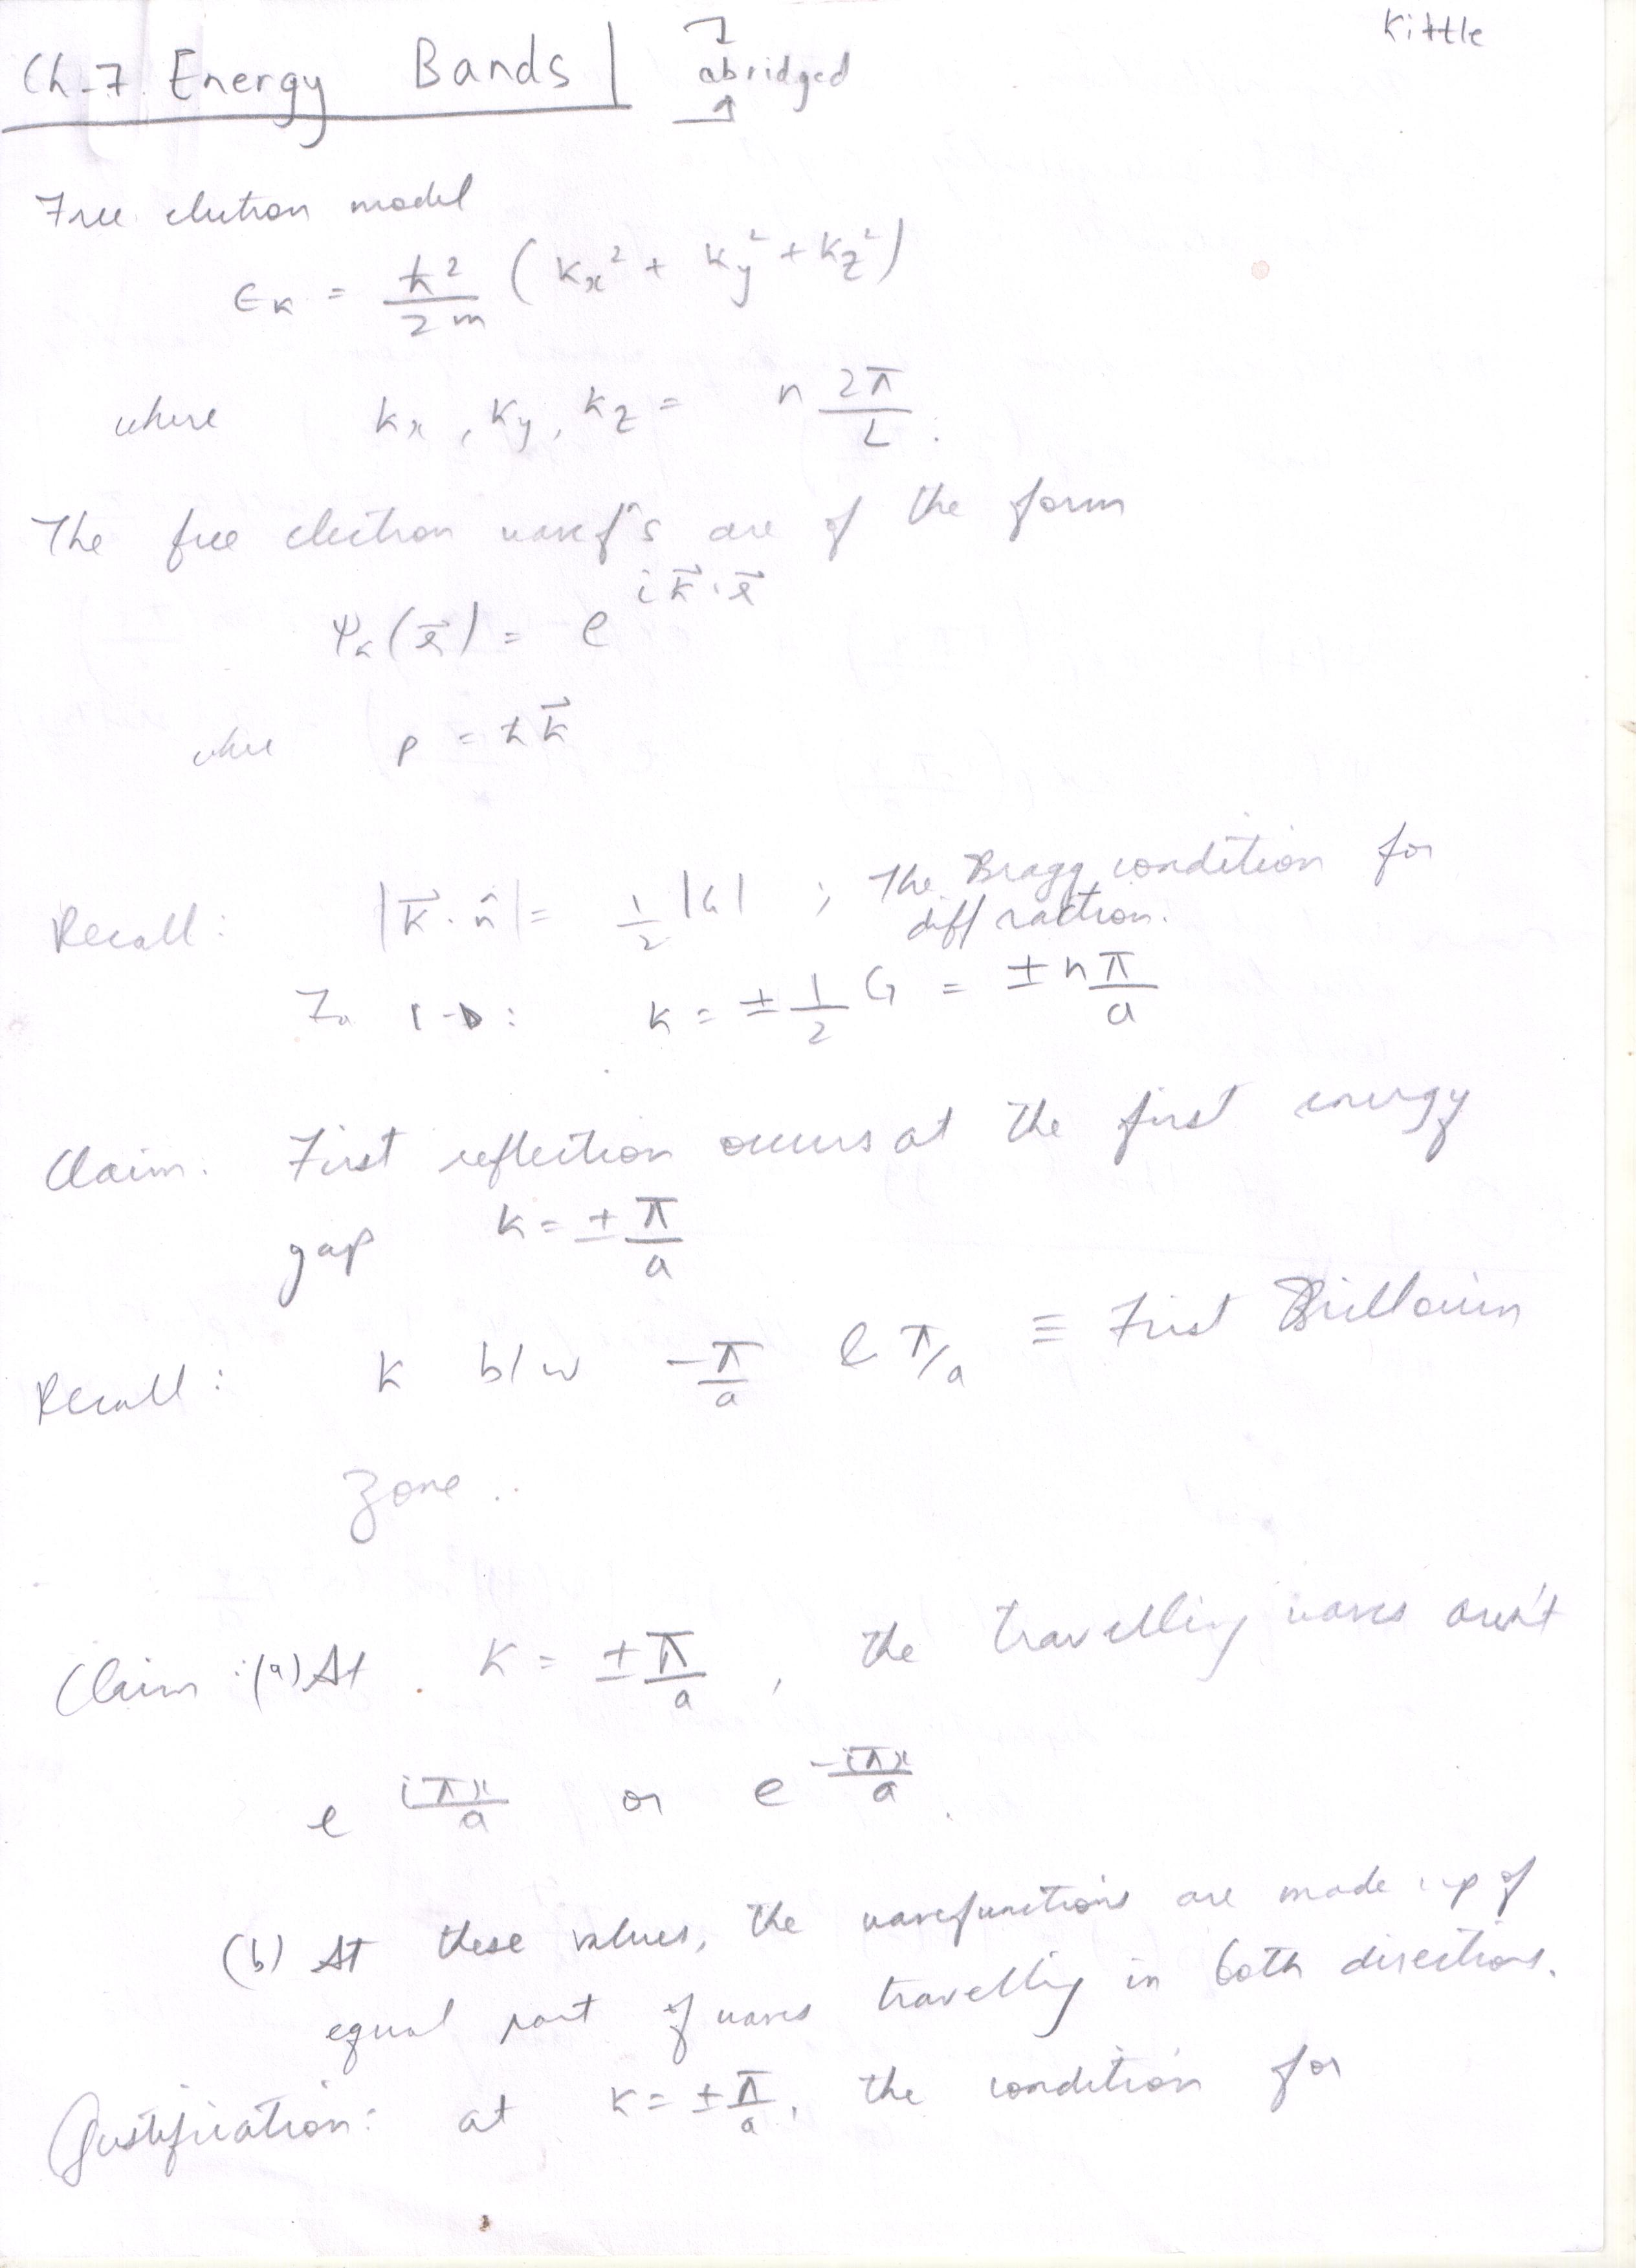 Kittle
Ch-7. Energy Bands | abridged
Free electron model
ϵ_k = ħ²/2m (kx² + ky² + kz²)
where kx, ky, kz = n 2π/L.
The free electron wavefⁿs are of the form
ψ_k(r⃗) = e^{i k⃗·r⃗}
where p = ħk⃗
Recall: |k⃗·n̂| = ½|G| ; The Bragg condition for
diffraction.
In 1-D: k = ±½ G = ± nπ/a
Claim: First reflection occurs at the first energy
gap k = ± π/a
Recall: k b/w -π/a & π/a ≡ First Brillouin
Zone.
Claim: (a) At k = ± π/a, the travelling waves aren't
e^{iπx/a} or e^{-iπx/a}.
(b) At these values, the wavefunctions are made up of
equal part of waves travelling in both directions.
Justification: at k = ± π/a, the condition for